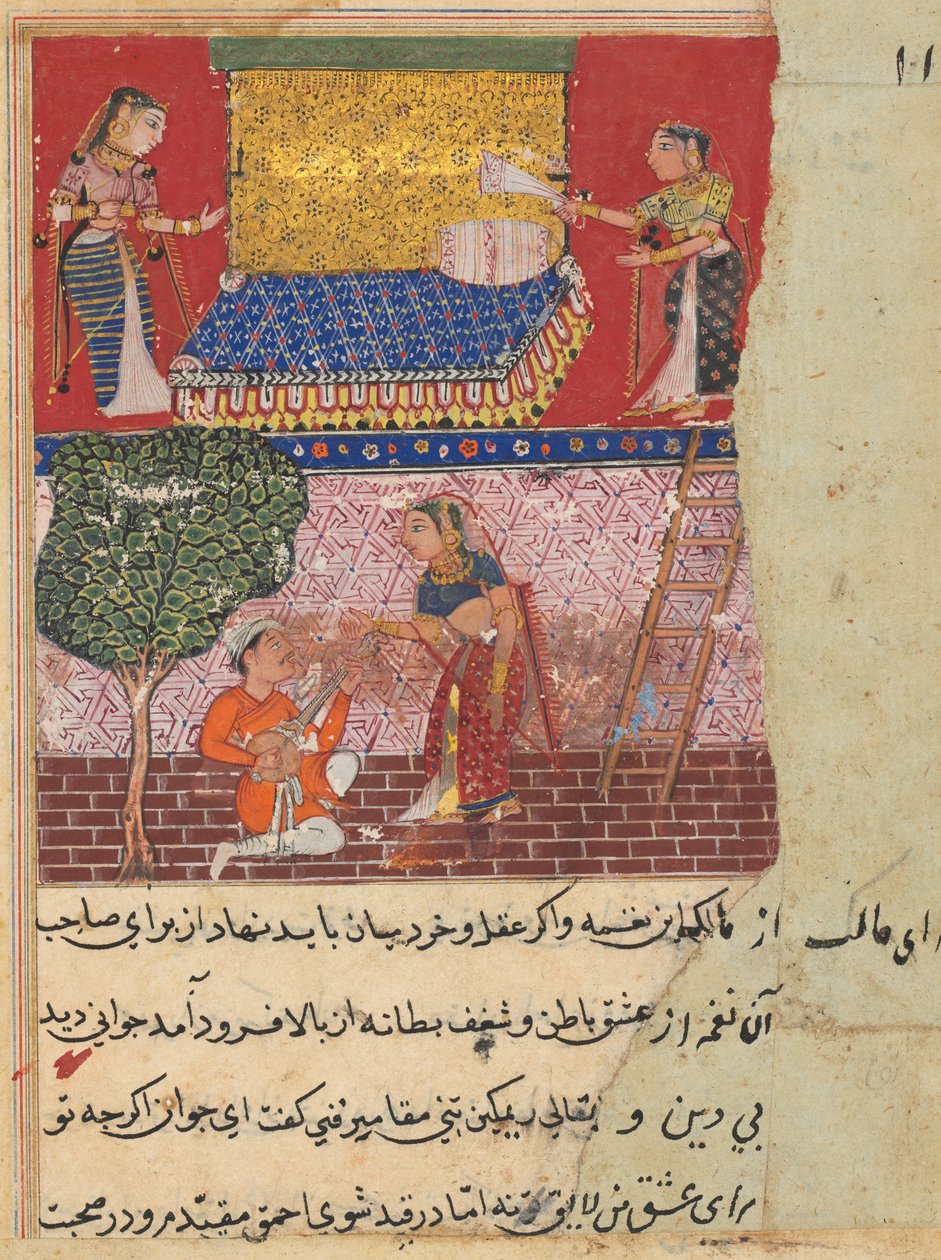 برای مالک از مالکه این نغمه واکر عقل و خرد میان باید نهاد از برای صاحب
آن نغمه از عشق باطن و شغف بطانه از بالا فرود آمد جوانی دید
بی دین و بقالی ریمکین تنی مقامیر فنی کفت ای جوان اکرجه تو
برای عشق من لایق نه امّا در قید شوی احمق مقیّدم رو در صحبت